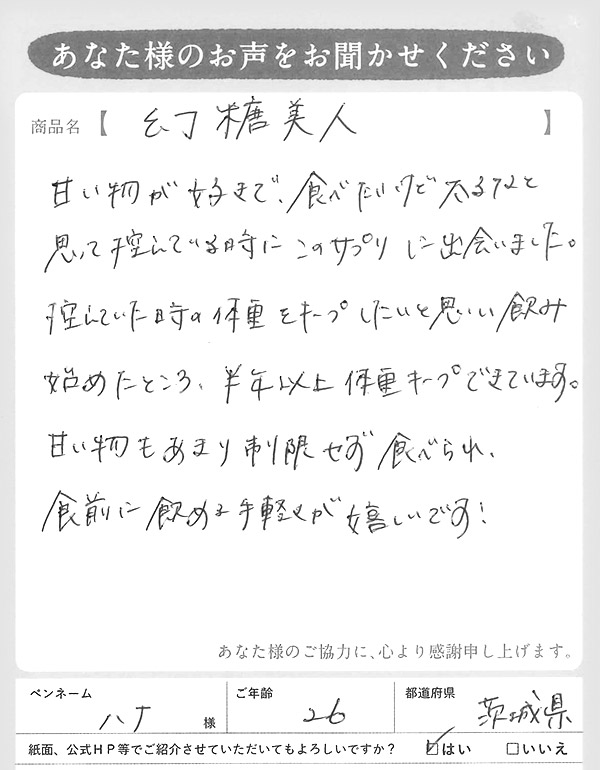 あなた様のお声をお聞かせください
商品名【 幻糖美人 】
甘い物が好きで、食べたいけど太るなと
思って控えている時にこのサプリに出会いました。
控えていた時の体重をキープしたいと思い飲み
始めたところ、半年以上体重キープできています。
甘い物もあまり制限せず食べられ、
食前に飲める手軽さが嬉しいです!
あなた様のご協力に、心より感謝申し上げます。
ペンネーム ハナ 様 ご年齢 26 都道府県 茨城県
紙面、公式HP等でご紹介させていただいてもよろしいですか? ☑はい □いいえ